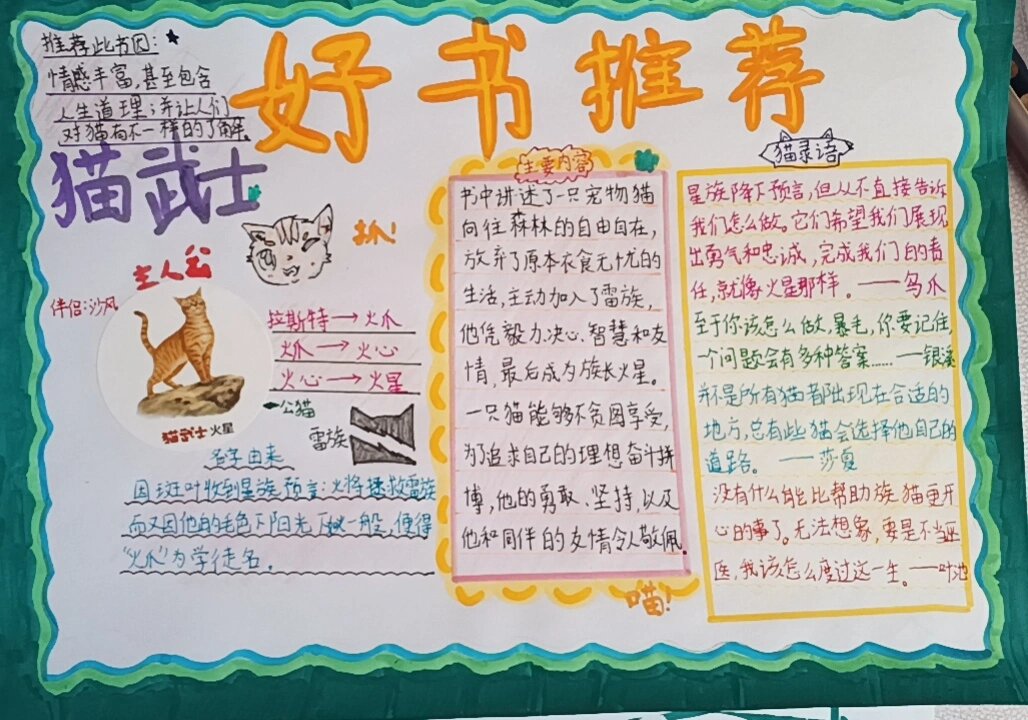 好书推荐
推荐此书因:
情感丰富,甚至包含
人生道理;并让人们
对猫有不一样的了解.
猫武士
主人公
抓!
伴侣:沙风
猫武士 火星
拉斯特→火爪
火爪→火心
火心→火星
公猫
雷族
名字由来
因斑叶收到星族预言:火将拯救雷族
而又因他的毛色下阳光下
一般,便得
"火爪"为学徒名.
主要内容
书中讲述了一只宠物猫
向往森林的自由自在,
放弃了原本衣食无忧的
生活,主动加入了雷族,
他凭毅力、决心、智慧和友
情,最后成为族长火星。
一只猫能够不贪图享受,
为了追求自己的理想奋斗拼
搏,他的勇敢、坚持,以及
他和同伴的友情令人敬佩.
喵!
猫录语
星族降下预言,但从不直接告诉
我们怎么做。它们希望我们展现
出勇气和忠诚,完成我们的责
任,就像火星那样。——鸟爪
至于你该怎么做,暴毛,你要记住,
一个问题会有多种答案……—银溪
并不是所有猫都出现在合适的
地方,总有些猫会选择他自己的
道路。——莎夏
没有什么能比帮助族猫更开
心的事了。无法想象,要是不当巫
医,我该怎么度过这一生。—叶池